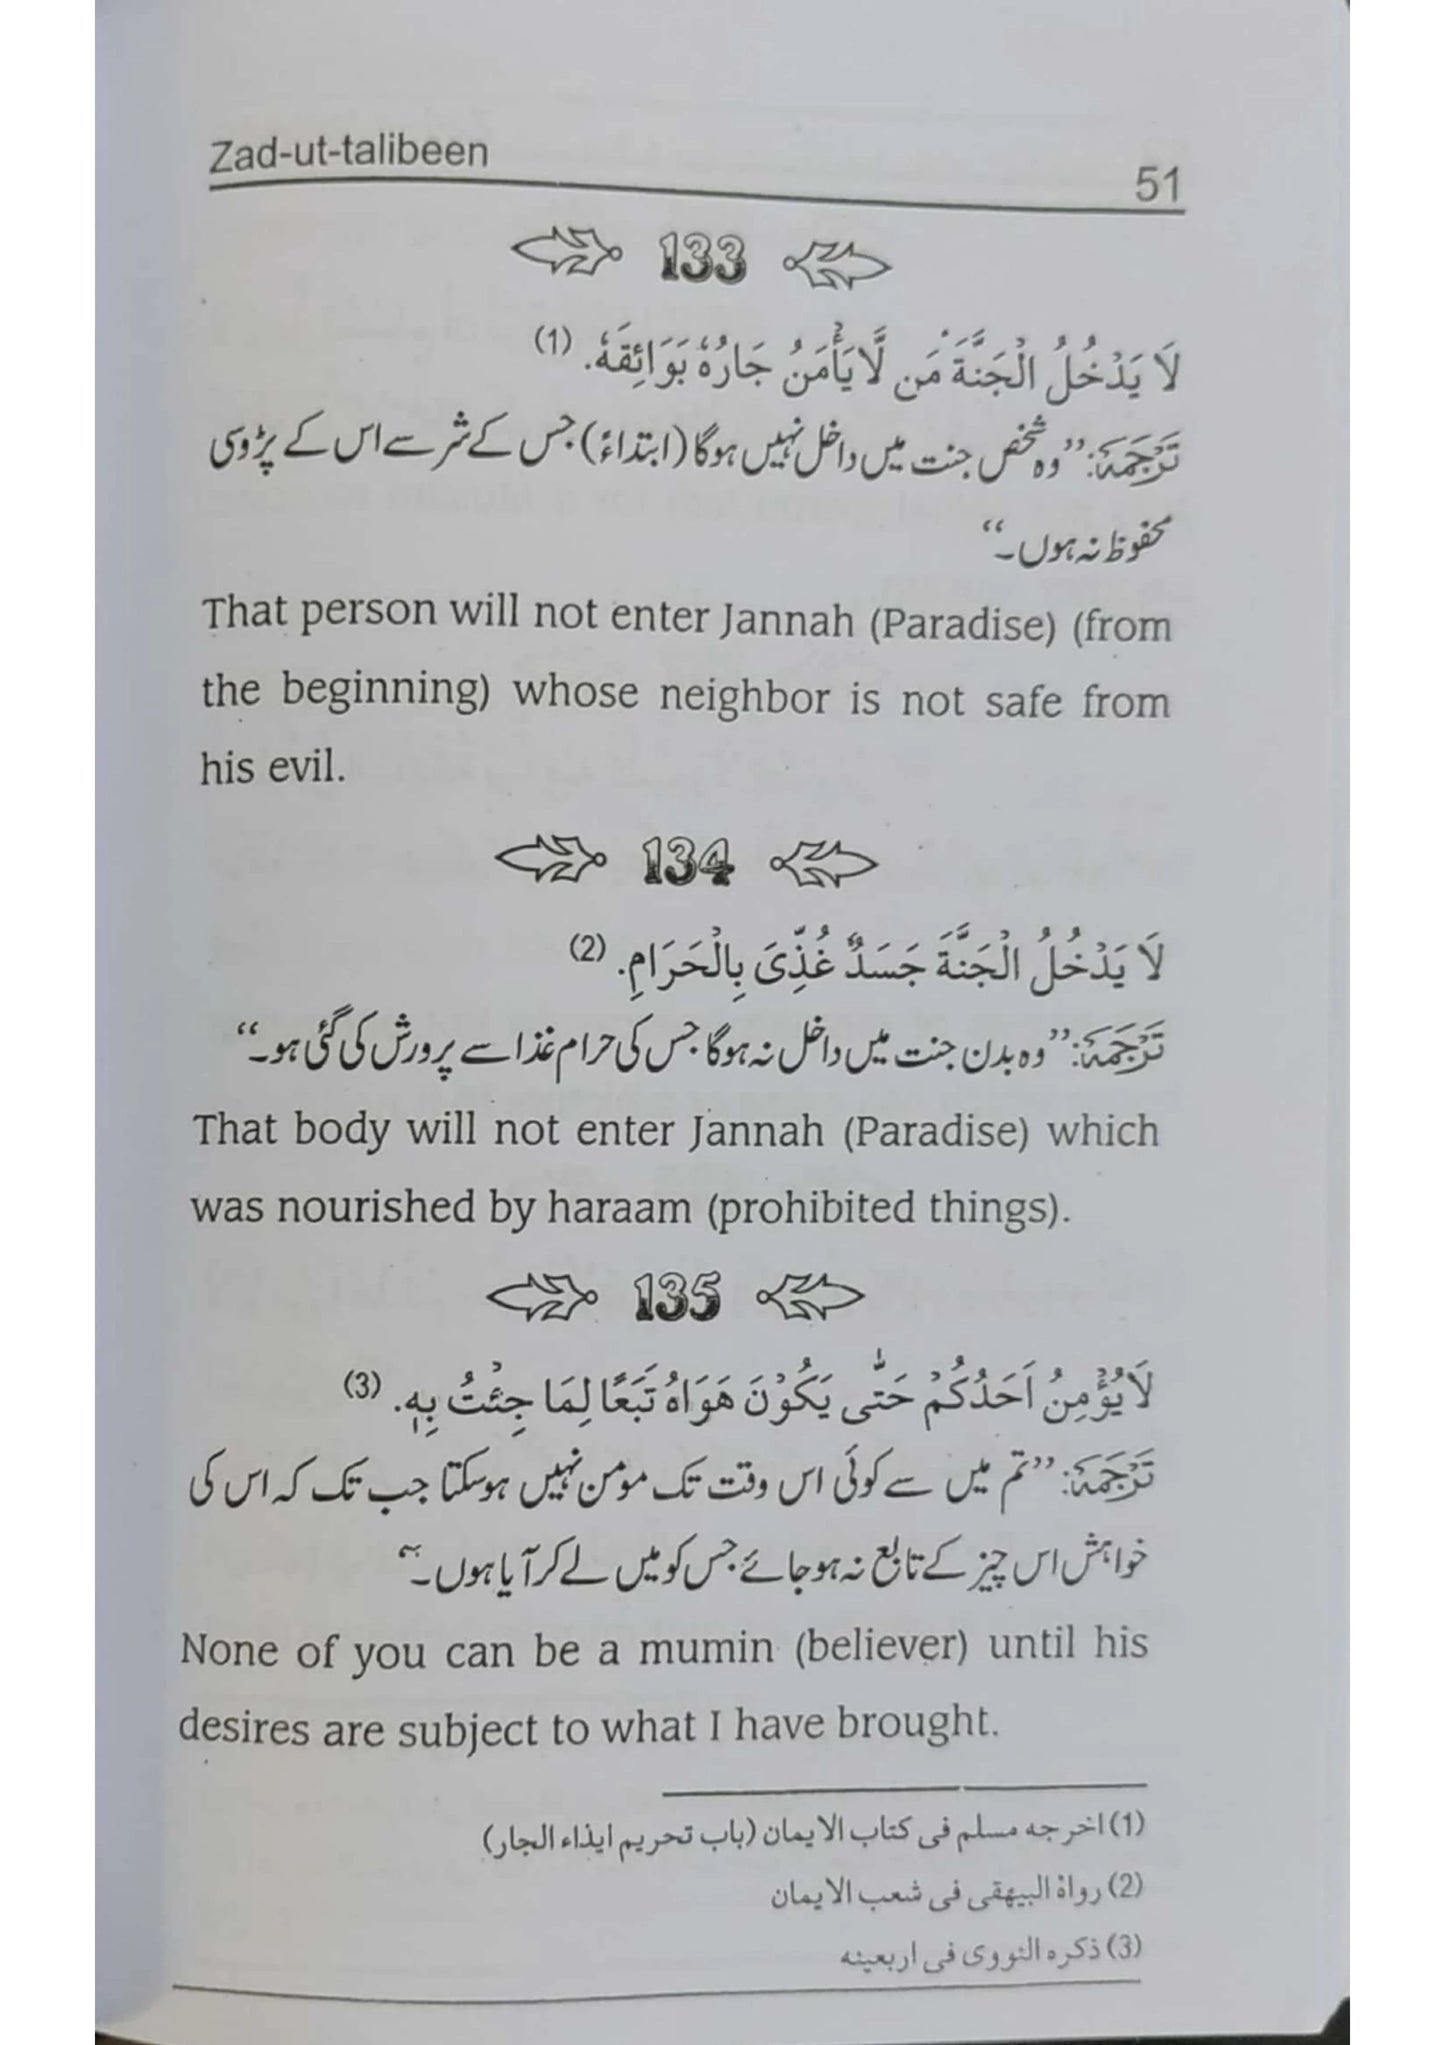 Zad-ut-talibeen
51
133
لَا يَدْخُلُ الْجَنَّةَ مَن لَّا يَأْمَنُ جَارُهٗ بَوَائِقَهٗ. (1)
تَرْجَمَہٗ: ’’وہ شخص جنت میں داخل نہیں ہوگا (ابتداءً) جس کے شر سے اس کے پڑوسی
محفوظ نہ ہوں۔‘‘
That person will not enter Jannah (Paradise) (from
the beginning) whose neighbor is not safe from
his evil.
134
لَا يَدْخُلُ الْجَنَّةَ جَسَدٌ غُذِّیَ بِالْحَرَامِ. (2)
تَرْجَمَہٗ: ’’وہ بدن جنت میں داخل نہ ہوگا جس کی حرام غذا سے پرورش کی گئی ہو۔‘‘
That body will not enter Jannah (Paradise) which
was nourished by haraam (prohibited things).
135
لَا يُؤْمِنُ اَحَدُكُمْ حَتّٰى يَكُوْنَ هَوَاهُ تَبَعًا لِمَا جِئْتُ بِهٖ. (3)
تَرْجَمَہٗ: ’’تم میں سے کوئی اس وقت تک مومن نہیں ہوسکتا جب تک کہ اس کی
خواہش اس چیز کے تابع نہ ہو جائے جس کو میں لے کر آیا ہوں۔‘‘
None of you can be a mumin (believer) until his
desires are subject to what I have brought.
(1) اخرجه مسلم فی کتاب الایمان (باب تحریم ایذاء الجار)
(2) رواہ البیهقی فی شعب الایمان
(3) ذکرہ النووی فی اربعینه